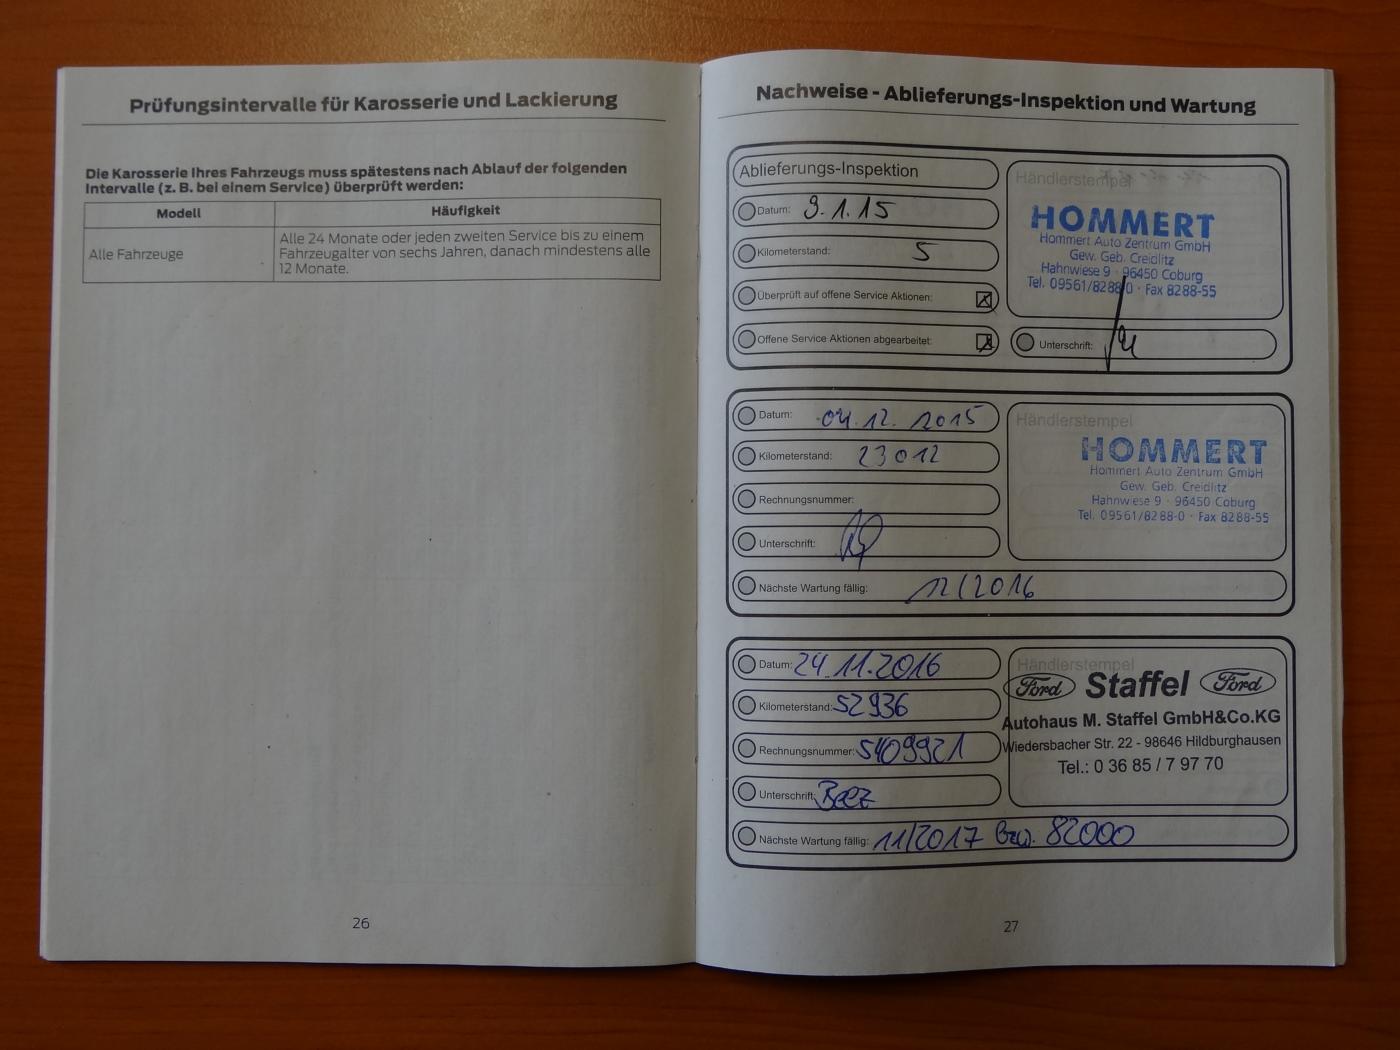 Prüfungsintervalle für Karosserie und Lackierung
Die Karosserie Ihres Fahrzeugs muss spätestens nach Ablauf der folgenden
Intervalle (z. B. bei einem Service) überprüft werden:
Modell Häufigkeit
Alle Fahrzeuge
Alle 24 Monate oder jeden zweiten Service bis zu einem
Fahrzeugalter von sechs Jahren, danach mindestens alle
12 Monate.
26
Nachweise - Ablieferungs-Inspektion und Wartung
Ablieferungs-Inspektion
Datum: 9.1.15
Kilometerstand: 5
Überprüft auf offene Service Aktionen:
Offene Service Aktionen abgearbeitet:
Händlerstempel
HOMMERT
Hommert Auto Zentrum GmbH
Gew. Geb. Creidlitz
Hahnwiese 9 · 96450 Coburg
Tel. 09561/8288-0 · Fax 8288-55
Unterschrift:
Datum: 04.12.2015
Kilometerstand: 23012
Rechnungsnummer:
Unterschrift:
Nächste Wartung fällig: 12/2016
Händlerstempel
HOMMERT
Hommert Auto Zentrum GmbH
Gew. Geb. Creidlitz
Hahnwiese 9 · 96450 Coburg
Tel. 09561/8288-0 · Fax 8288-55
Datum: 24.11.2016
Kilometerstand: 52936
Rechnungsnummer: 5409921
Unterschrift:
Nächste Wartung fällig: 11/2017 bzw. 82000
Händlerstempel
Ford Staffel Ford
Autohaus M. Staffel GmbH&Co.KG
Wiedersbacher Str. 22 - 98646 Hildburghausen
Tel.: 0 36 85 / 7 97 70
27